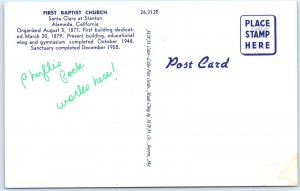 FIRST BAPTIST CHURCH
Santa Clara at Stanton
Alameda, California
Organized August 5, 1877. First building dedicat-
ed March 20, 1879. Present building, educational
wing and gymnasium completed October 1948.
Sanctuary completed December 1955.
26,212P
PLACE
STAMP
HERE
Post Card
Phyllis
works here!